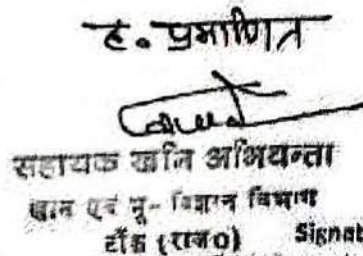 ह. प्रमाणित
सहायक खनि अभियन्ता
खान एवं भू-विज्ञान विभाग
टोंक (राज0) Signat